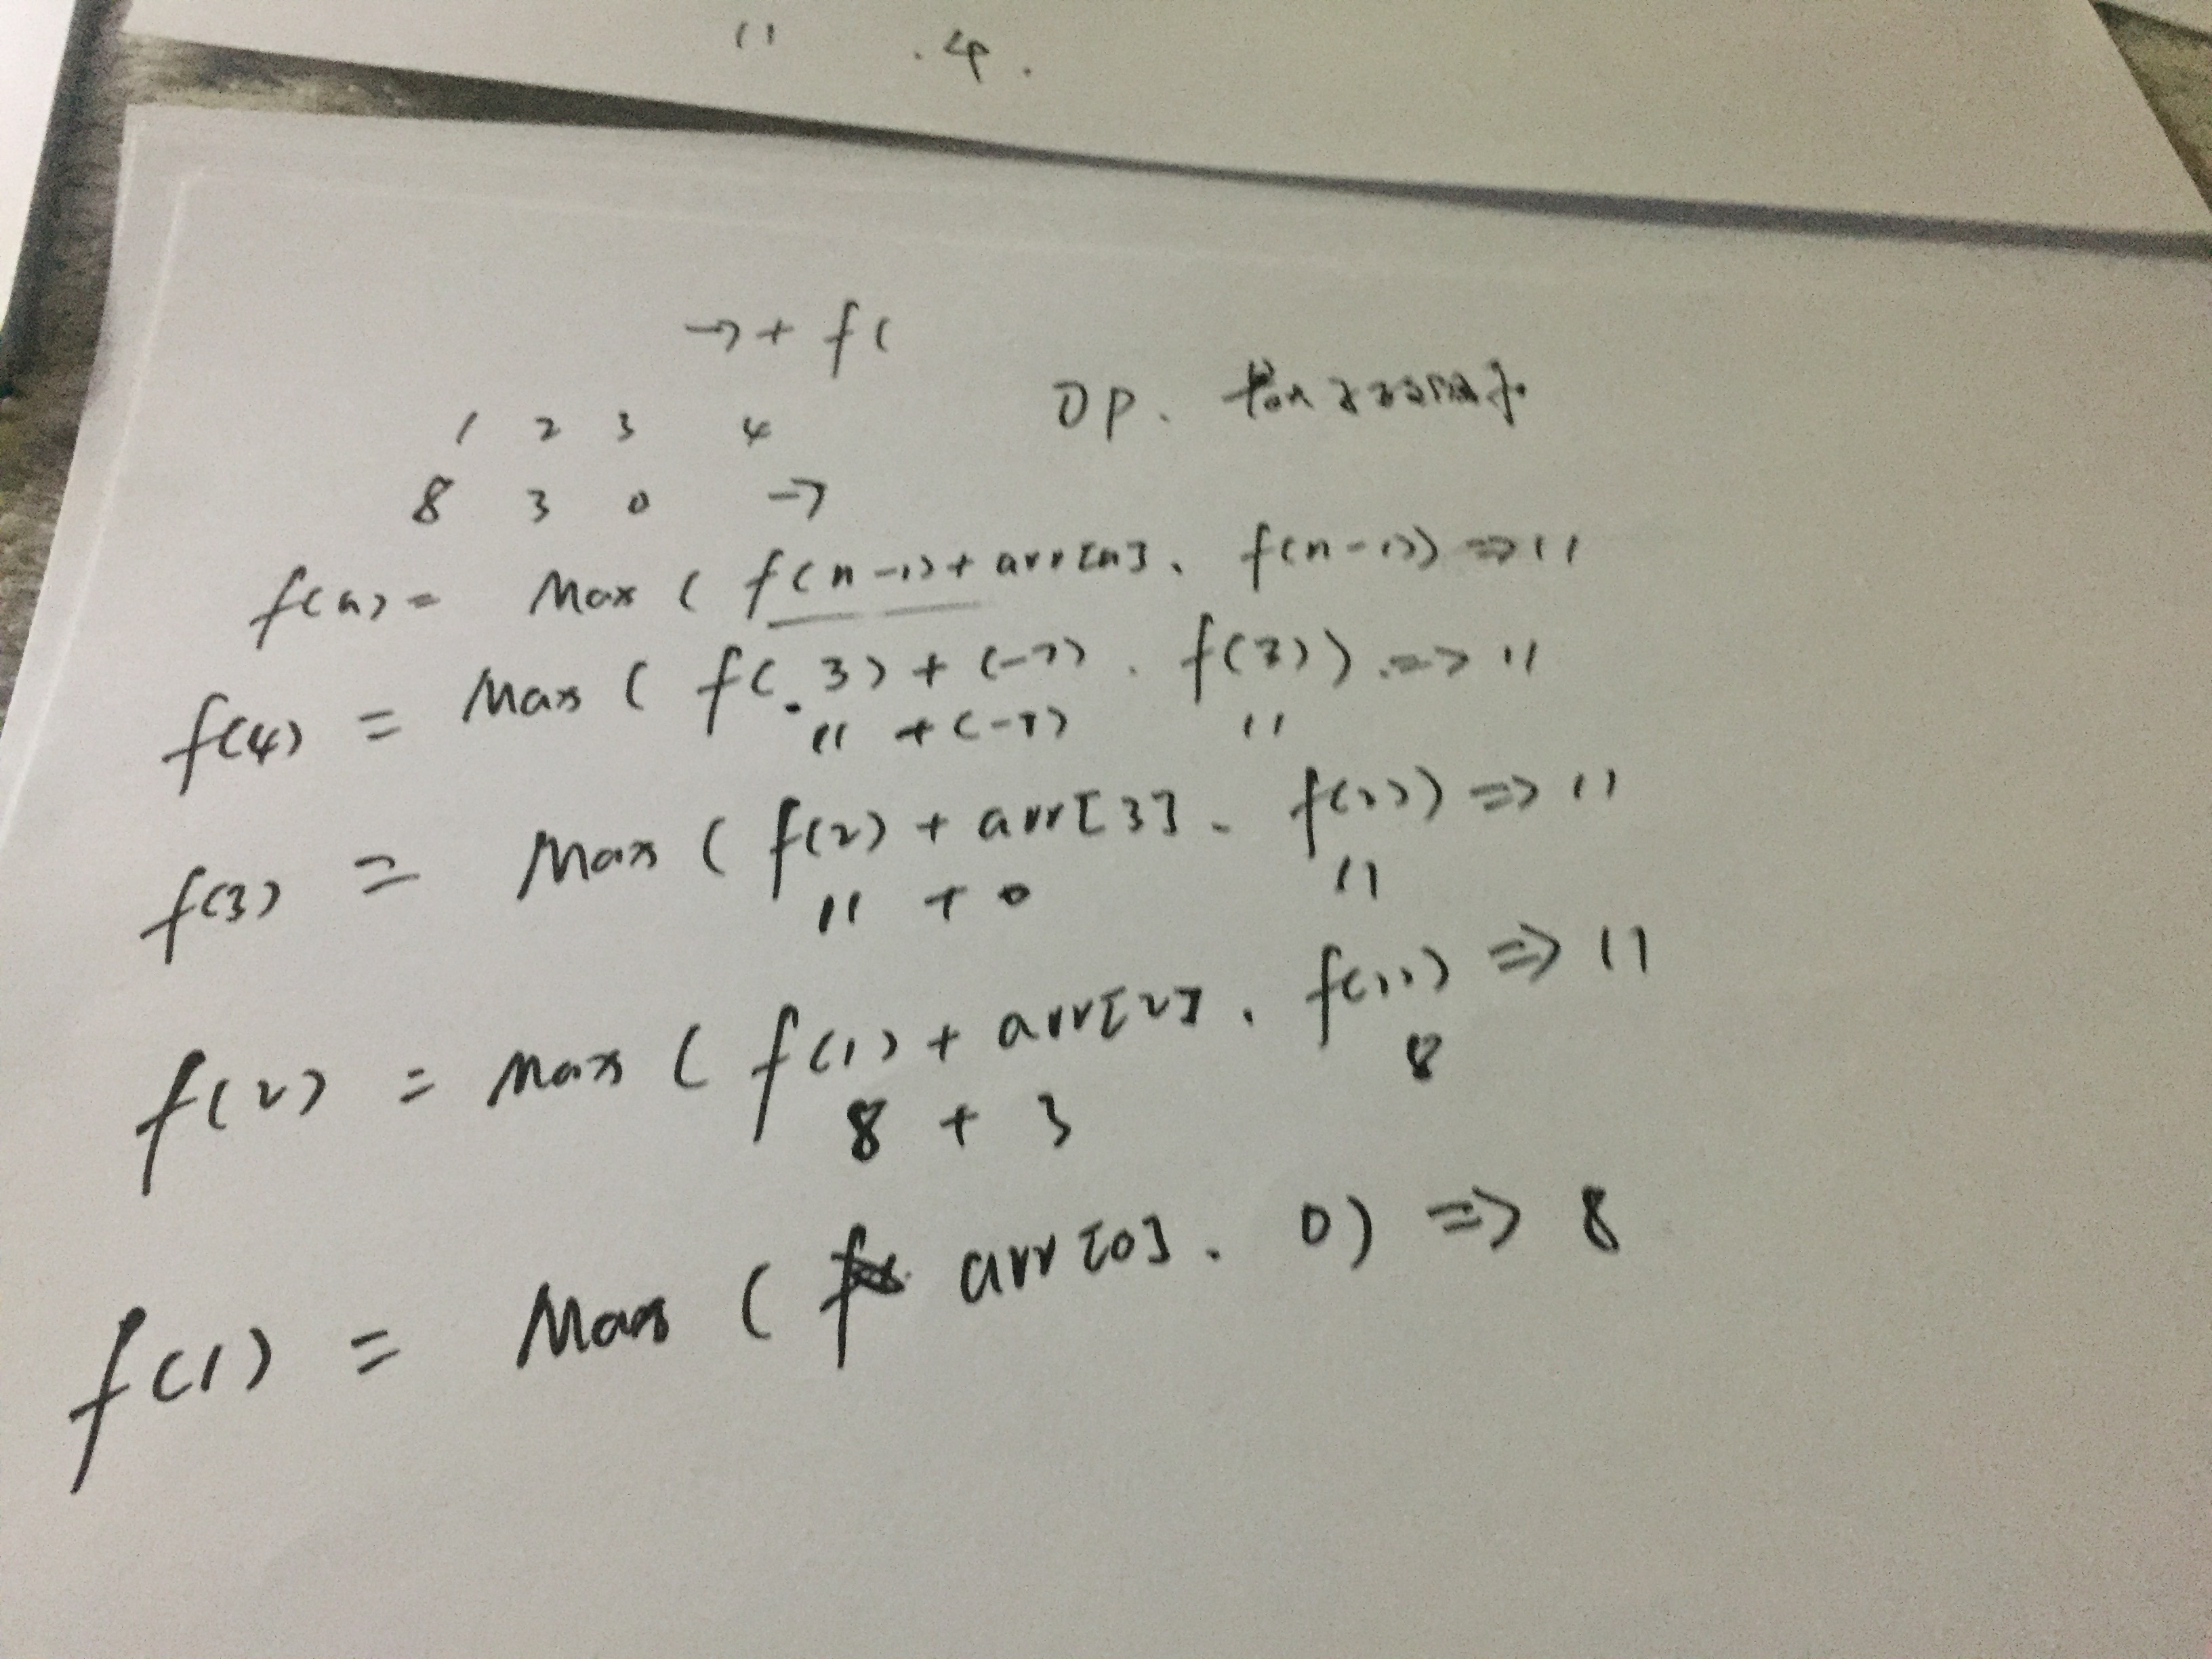 11 . 4 .
→ + f(
DP.
1 2 3 4
8 3 0 -7
f(n) = Max ( f(n-1) + arr[n]. f(n-1)) => 11
f(4) = Max ( f(.3) + (-7). f(3)) => 11
11 + (-7) 11
f(3) = Max ( f(2) + arr[3]. f(2)) => 11
11 + 0 11
f(2) = Max ( f(1) + arr[2]. f(1)) => 11
8 + 3 8
f(1) = Max ( arr[0]. 0) => 8